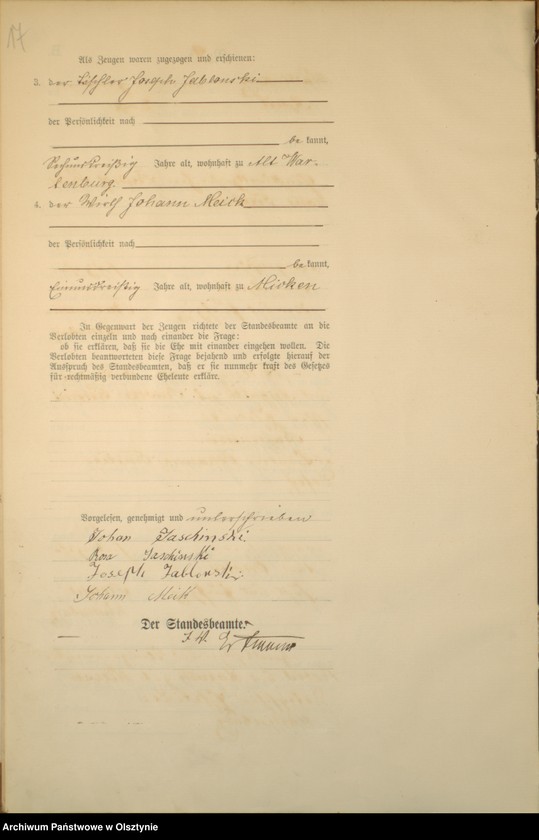 17
Als Zeugen waren zugezogen und erschienen:
3. der Tischler Joseph Jablonski
der Persönlichkeit nach
be kannt,
Sechsunddreißig Jahre alt, wohnhaft zu Alt War-
tenburg.
4. der Wirth Johann Meick
der Persönlichkeit nach
be kannt,
Einunddreißig Jahre alt, wohnhaft zu Micken
In Gegenwart der Zeugen richtete der Standesbeamte an die
Verlobten einzeln und nach einander die Frage:
ob sie erklären, daß sie die Ehe mit einander eingehen wollen. Die
Verlobten beantworteten diese Frage bejahend und erfolgte hierauf der
Ausspruch des Standesbeamten, daß er sie nunmehr kraft des Gesetzes
für rechtmäßig verbundene Eheleute erkläre.
Vorgelesen, genehmigt und unterschrieben
Johan Jaschinski
Rosa Jaschinski
Joseph Jablonski
Johann Meik
Der Standesbeamte.
I. V.
Archiwum Państwowe w Olsztynie